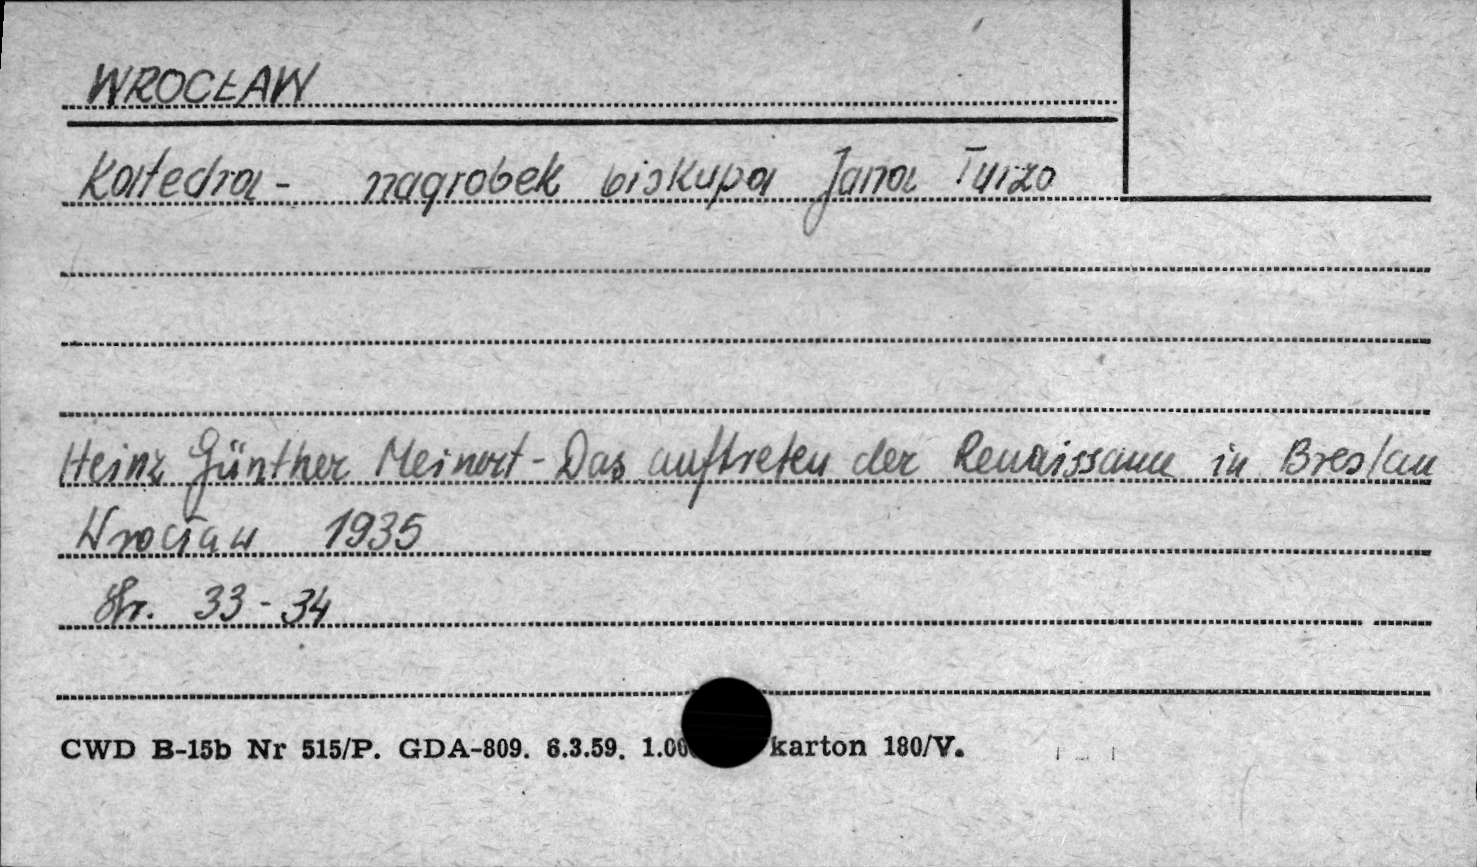 WROCŁAW
Katedra - nagrobek biskupa Jana Turzo
Heinz Günther Meinert - Das auftreten der Renaissance in Breslau
Wrocław 1935
Str. 33-34
CWD B-15b Nr 515/P. GDA-809. 6.3.59. 1.00 karton 180/V.